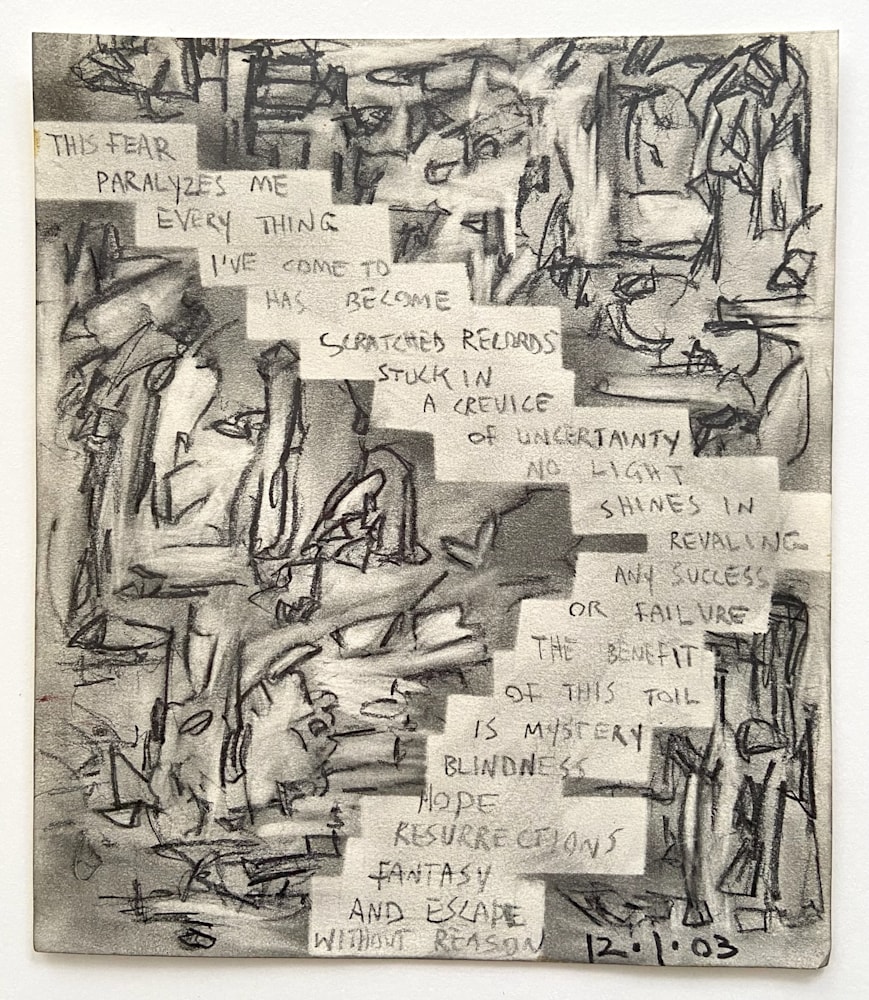 THIS FEAR
PARALYZES ME
EVERY THING
I'VE COME TO
HAS BECOME
SCRATCHED RECORDS
STUCK IN
A CREVICE
OF UNCERTAINTY
NO LIGHT
SHINES IN
REVALING
ANY SUCCESS
OR FAILURE
THE BENEFIT
OF THIS TOIL
IS MYSTERY
BLINDNESS
HOPE
RESURRECTIONS
FANTASY
AND ESCAPE
WITHOUT REASON
12.1.03